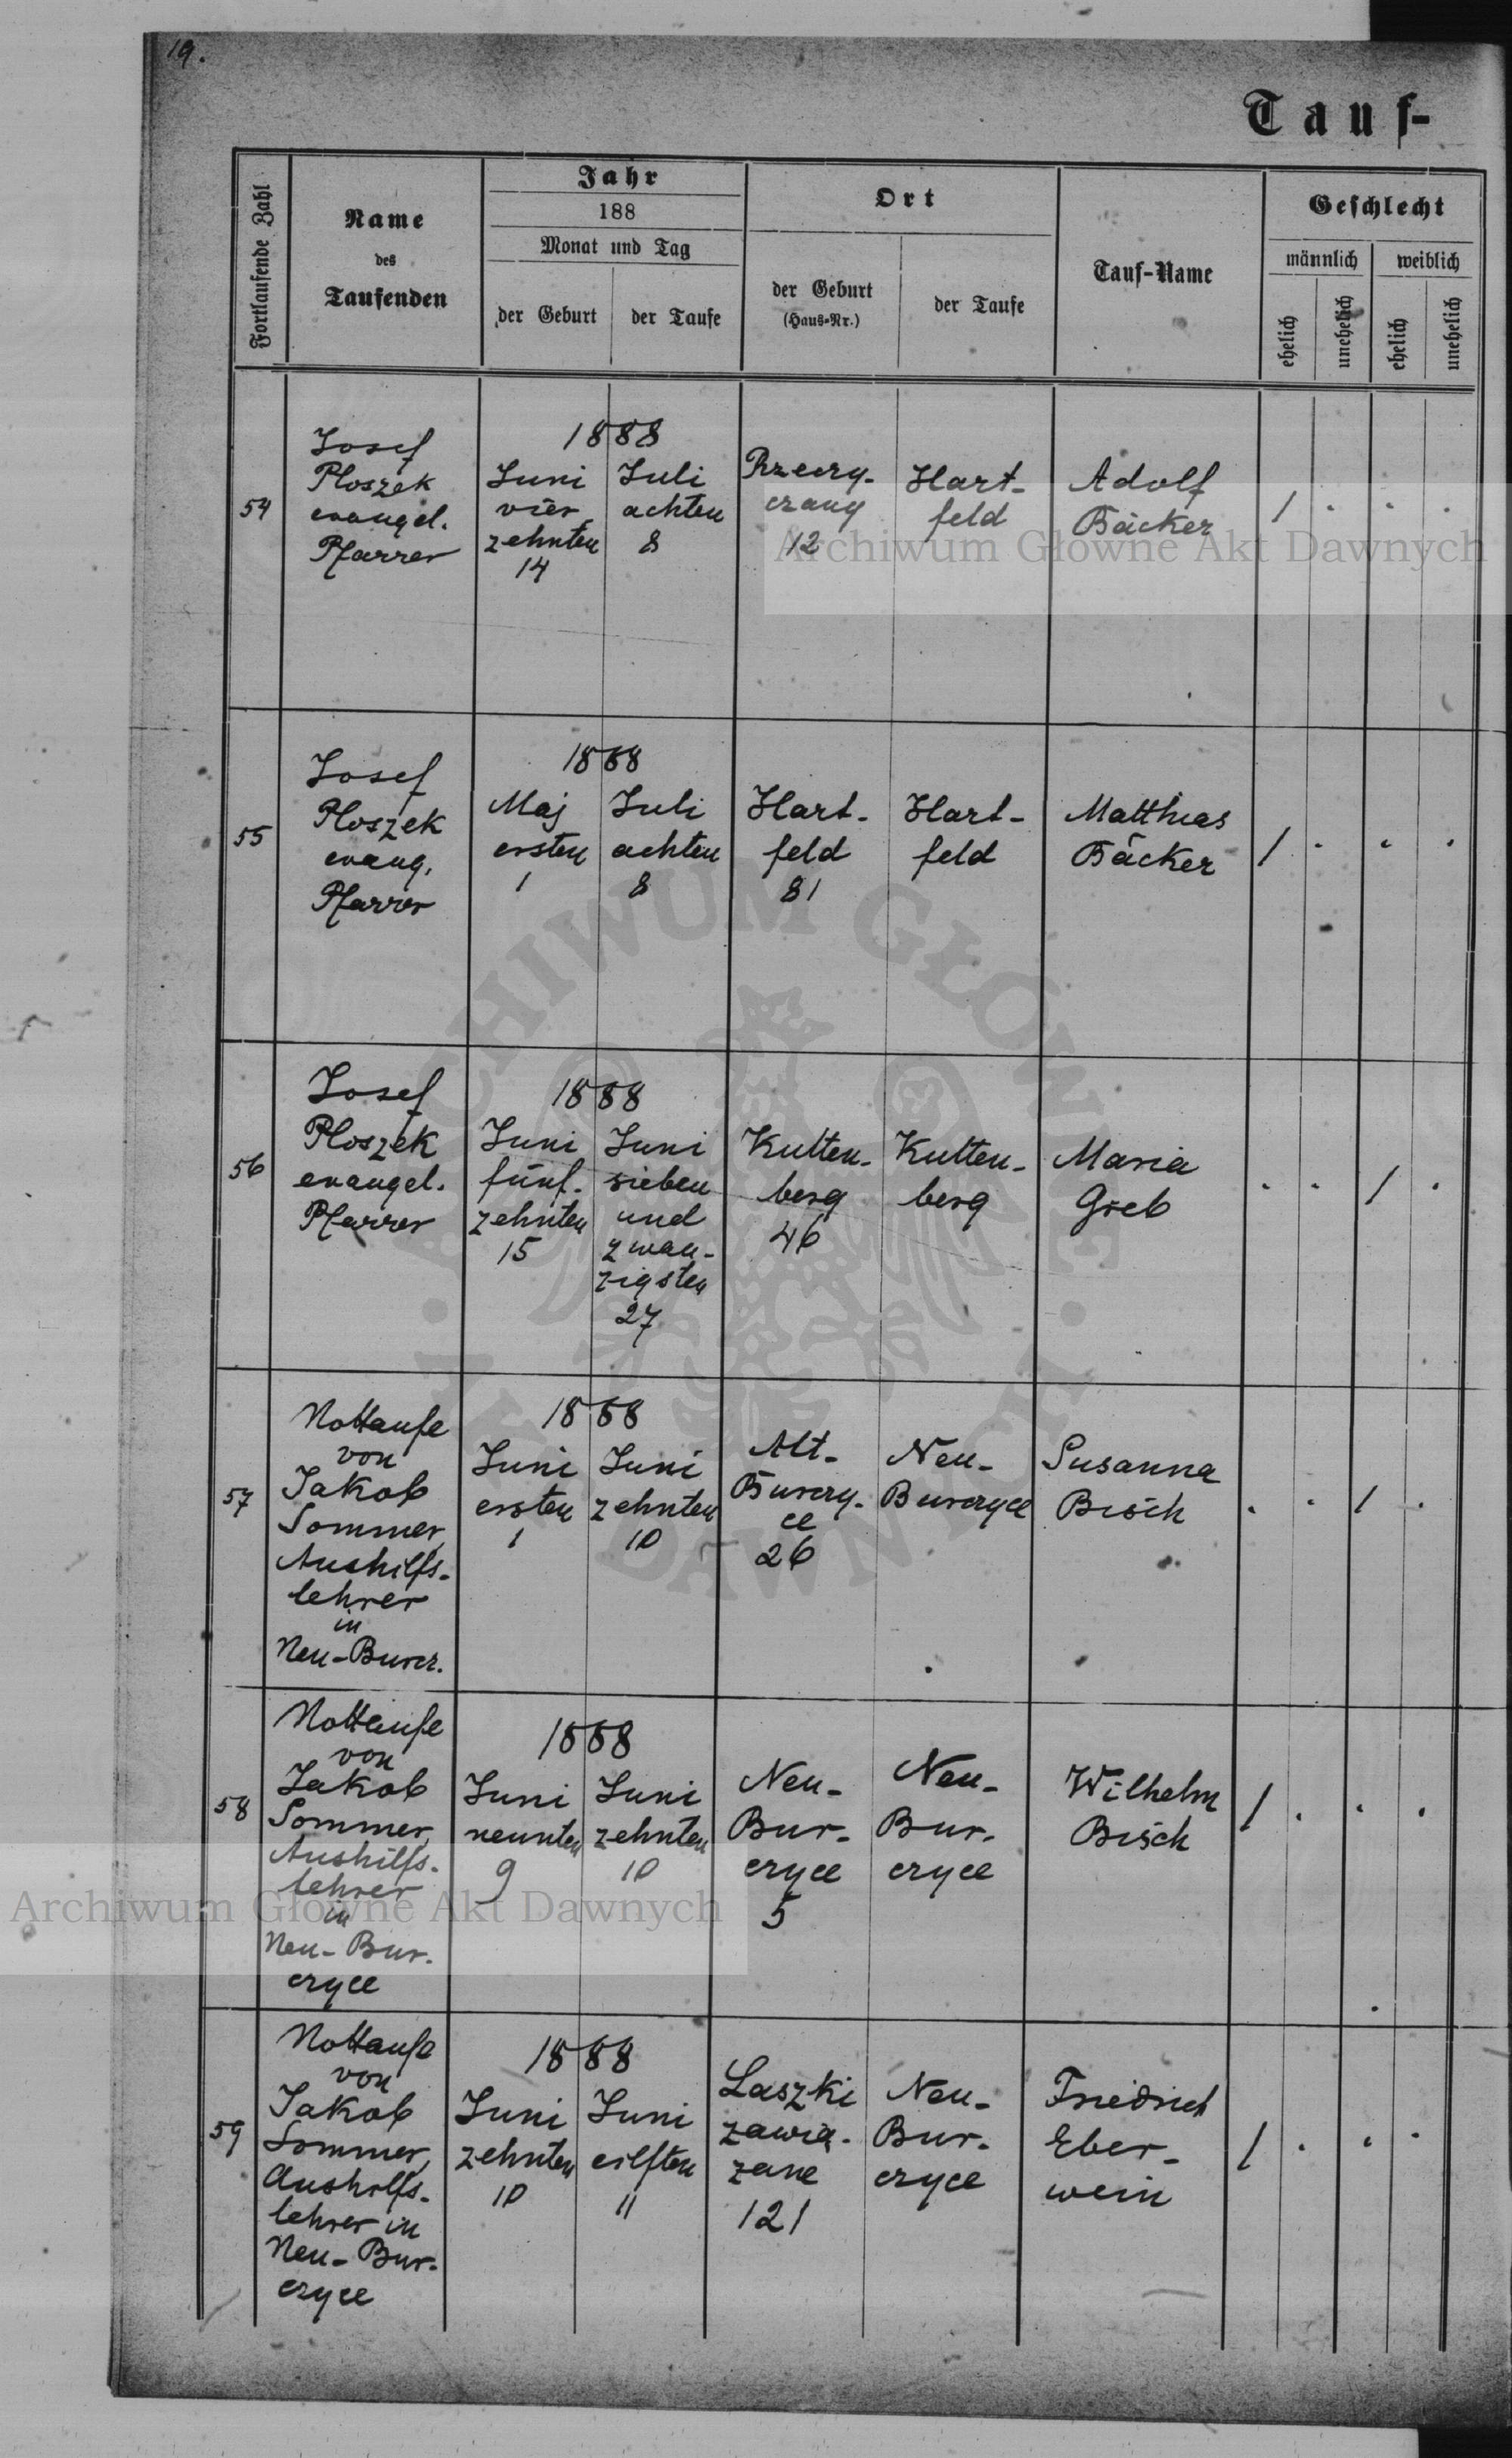 19.
Tauf-
Fortlaufende Zahl
Name
des
Taufenden
Jahr
188
Monat und Tag
der Geburt
der Taufe
Ort
der Geburt
(Haus-Nr.)
der Taufe
Tauf-Name
Geschlecht
männlich
weiblich
ehelich
unehelich
ehelich
unehelich
54
Josef
Ploszek
evangel.
Pfarrer
1888
Juni
vier
zehnten
14
Juli
achten
8
Rzeczy-
czany
12
Hart-
feld
Adolf
Bäcker
1 . . .
55
Josef
Ploszek
evang.
Pfarrer
1888
Maj
ersten
1
Juli
achten
8
Hart-
feld
81
Hart-
feld
Matthias
Bäcker
1 . . .
56
Josef
Ploszek
evangel.
Pfarrer
1888
Juni
fünf-
zehnten
15
Juni
sieben
und
zwan-
zigsten
27
Kutten-
berg
46
Kutten-
berg
Maria
Greb
. . 1 .
57
Nottaufe
von
Jakob
Sommer,
Aushilfs-
lehrer
in
Neu-Burcz.
1888
Juni
ersten
1
Juni
zehnten
10
Alt-
Burczy-
ce
26
Neu-
Burczyce
Susanna
Bisch
. . 1 .
58
Nottaufe
von
Jakob
Sommer,
Aushilfs-
lehrer
in
Neu-Bur-
czyce
1888
Juni
neunten
9
Juni
zehnten
10
Neu-
Bur-
czyce
5
Neu-
Bur-
czyce
Wilhelm
Bisch
1 . . .
59
Nottaufe
von
Jakob
Sommer,
Aushilfs-
lehrer in
Neu-Bur-
czyce
1888
Juni
zehnten
10
Juni
eilften
11
Laszki
zawią-
zane
121
Neu-
Bur-
czyce
Friedrich
Eber-
wein
1 . . .
Archiwum Główne Akt Dawnych
ARCHIWUM GŁÓWNE AKT DAWNYCH
Archiwum Główne Akt Dawnych